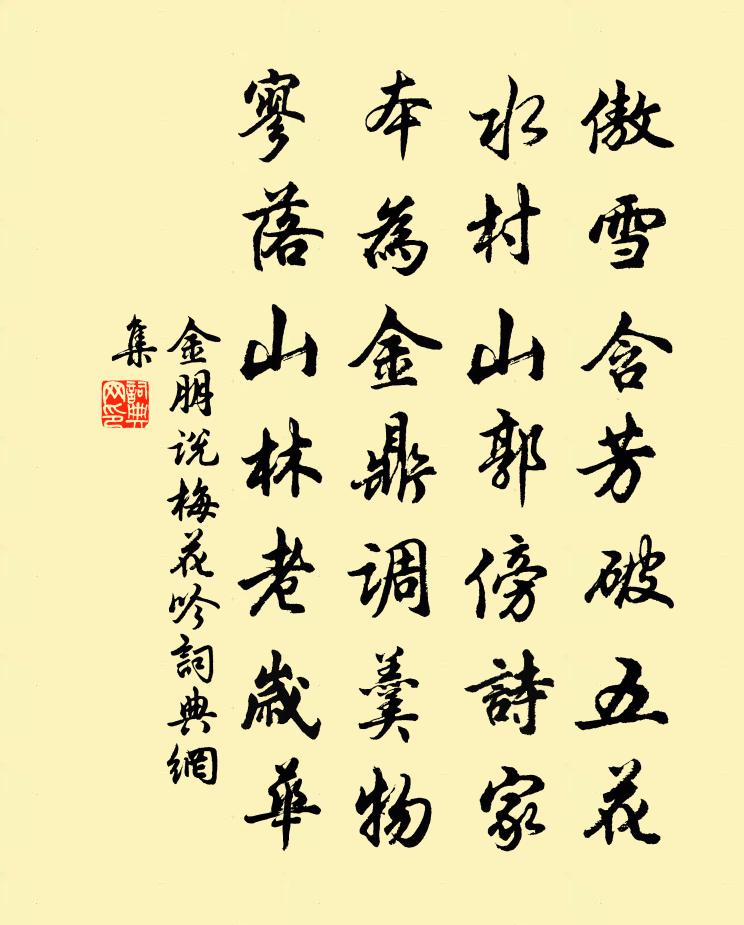 傲雪含芳破五花
水村山郭傍詩家
本為金鼎調羹物
寥落山林老歲華
金朋說梅花吟詞典網
集
詞典
网印